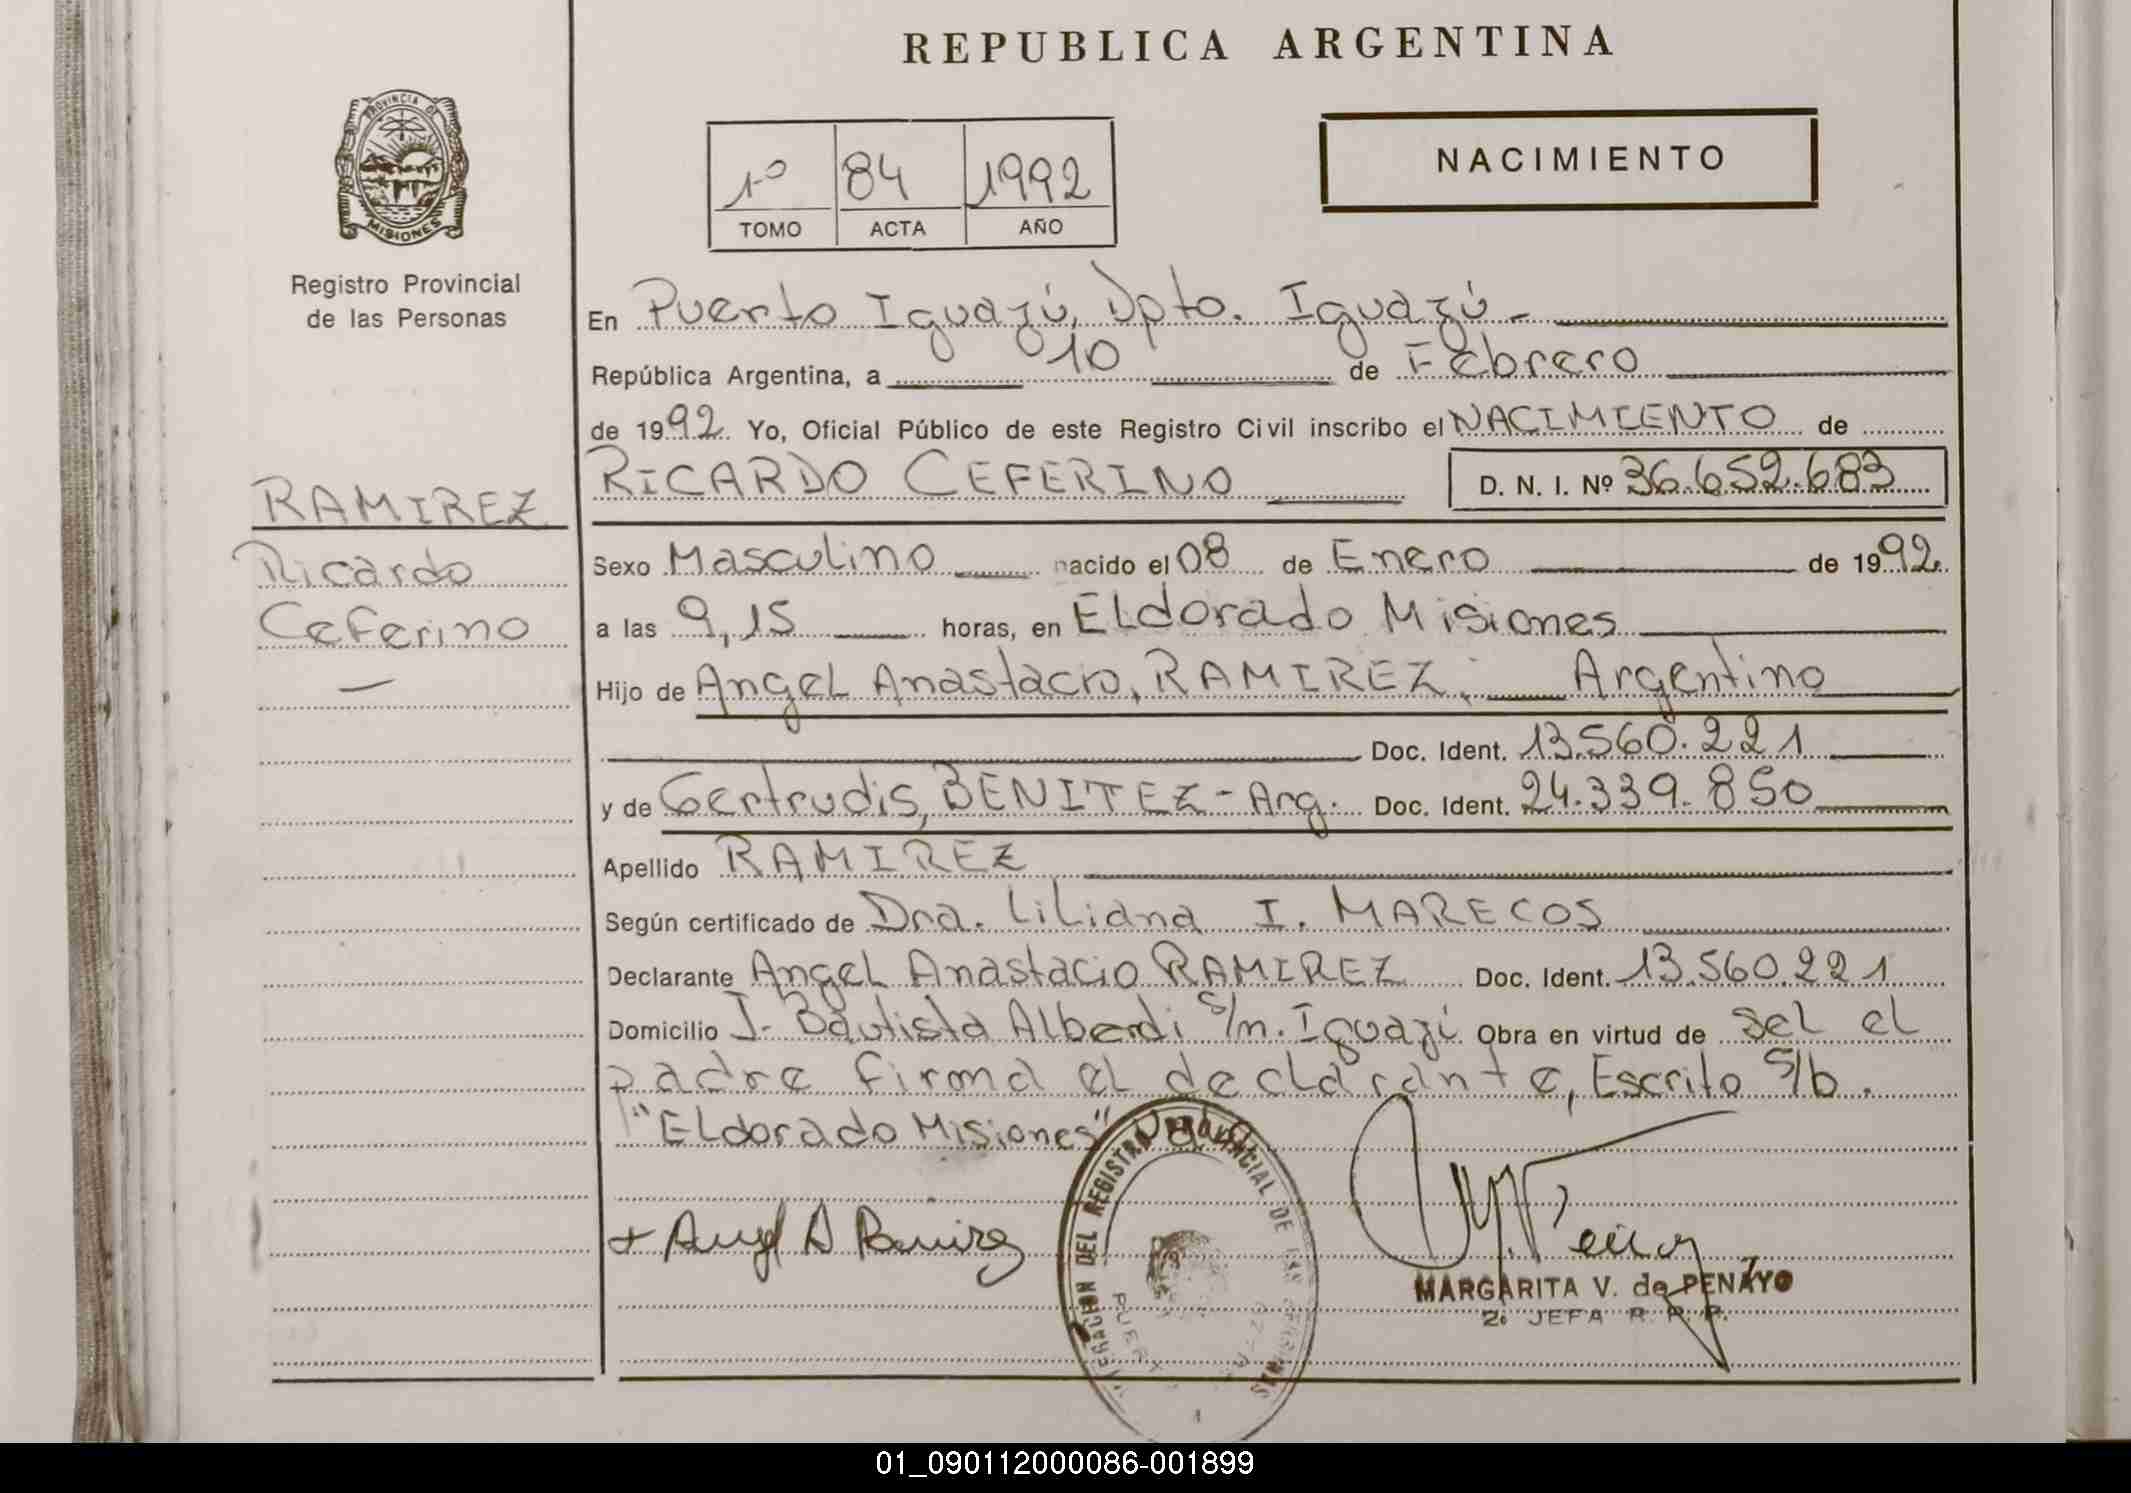 REPUBLICA ARGENTINA
PROVINCIA DE
MISIONES
Registro Provincial
de las Personas
1º 84 1992
TOMO ACTA AÑO
NACIMIENTO
En Puerto Iguazú, Dpto. Iguazú -
República Argentina, a 10 de Febrero
de 1992. Yo, Oficial Público de este Registro Civil inscribo el NACIMIENTO de
RICARDO CEFERINO D. N. I. Nº 36.652.683
RAMIREZ
Ricardo
Ceferino
Sexo Masculino nacido el 08 de Enero de 1992.
a las 9,15 horas, en ELdorado Misiones
Hijo de Angel Anastacio, RAMIREZ, Argentino
Doc. Ident. 13.560.221
y de Gertrudis, BENITEZ - Arg. Doc. Ident. 24.339.850
Apellido RAMIREZ
Según certificado de Dra. Liliana I. MARECOS
Declarante Angel Anastacio RAMIREZ Doc. Ident. 13.560.221
Domicilio J. Bautista Alberdi s/n. Iguazú Obra en virtud de sel el
padre firma el declarante, Escrito s/b.
"ELdorado Misiones"
+ Angel A Ramirez
DEL REGISTRO PROVINCIAL DE LAS PERSONAS
MARGARITA V. de PENAYO
2º JEFA R. P. P.
01_090112000086-001899